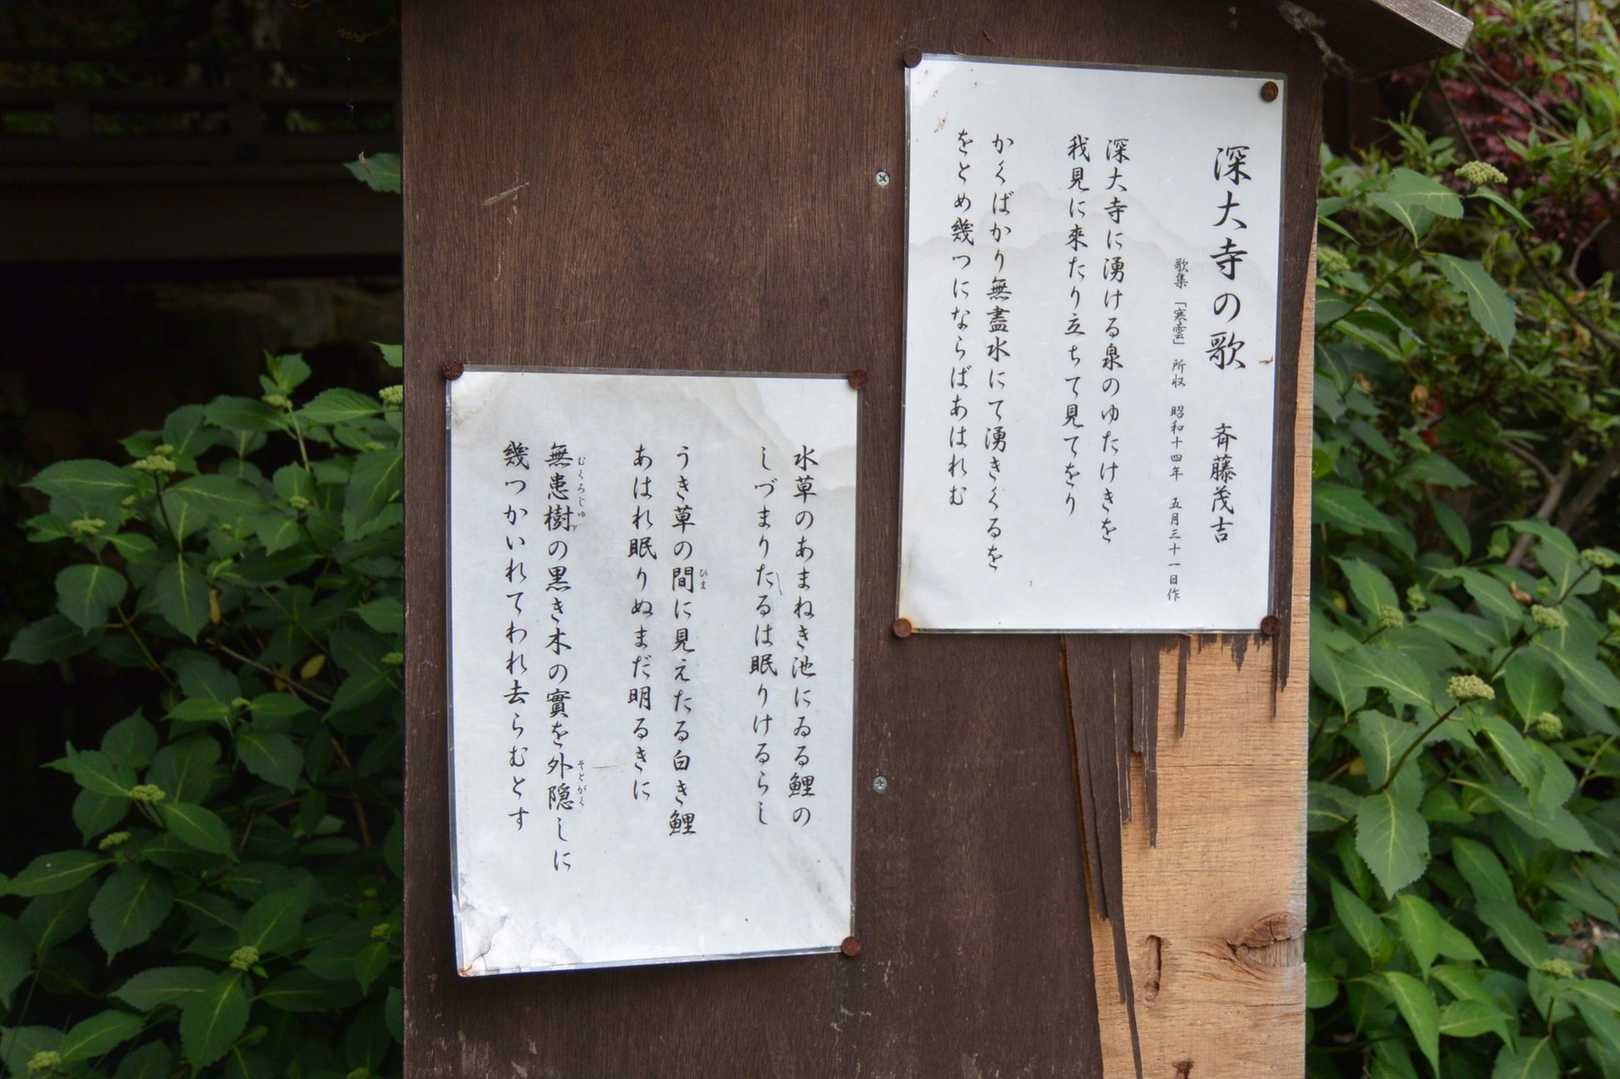 深大寺の歌 斉藤茂吉
歌集「寒雲」所収 昭和十四年 五月三十一日作
深大寺に湧ける泉のゆたけきを
我見に来たり立ちて見てをり
かくばかり無盡水にて湧きくるを
をとめ幾つにならばあはれむ
水草のあまねき池にゐる鯉の
しづまりたるは眠りけるらし
うき草の間に見えたる白き鯉
ひま
あはれ眠りぬまだ明るきに
無患樹の黒き木の實を外隠しに
むくろじゆ そとがく
幾つかいれてわれ去らむとす